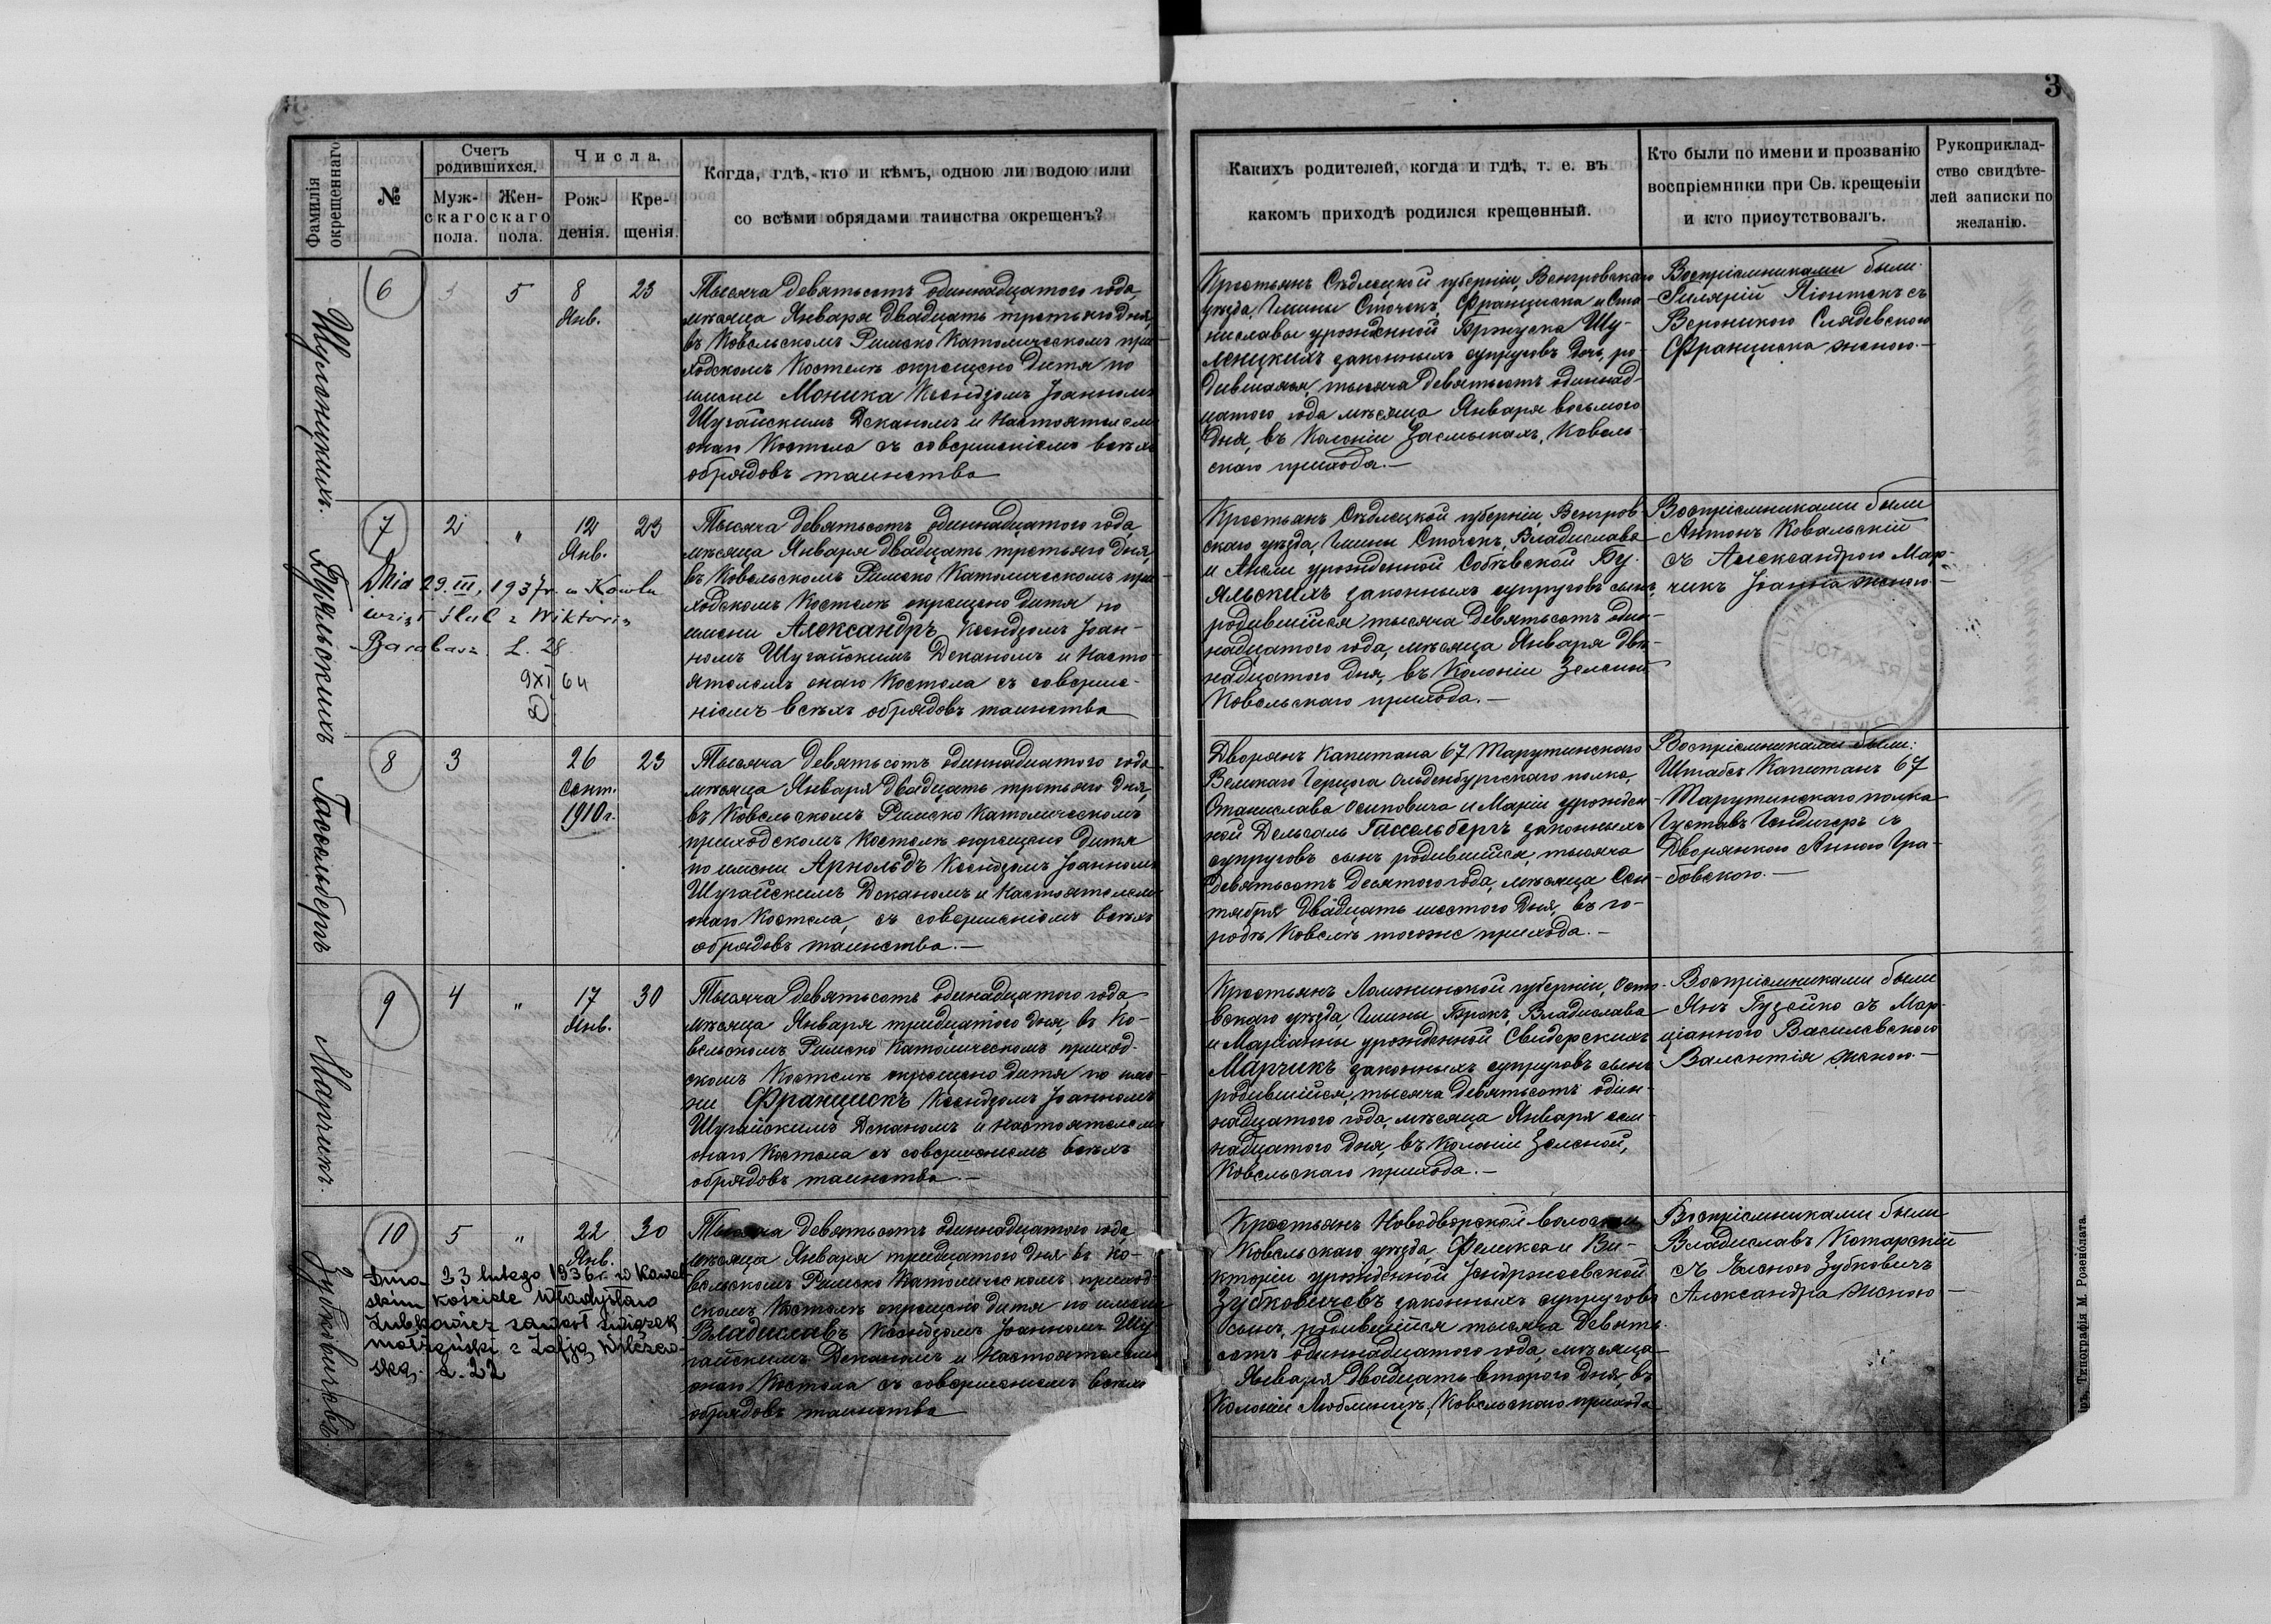 3
Фамилія окрещеннаго
№
Счетъ родившихся.
Мужскаго пола.
Женскаго пола.
Числа.
Рожденія.
Крещенія.
Когда, гдѣ, кто и кѣмъ, одною ли водою или
со всѣми обрядами таинства окрещенъ?
Какихъ родителей, когда и гдѣ, т. е. въ
какомъ приходѣ родился крещенный.
Кто были по имени и прозванію
воспріемники при Св. крещеніи
и кто присутствовалъ.
Рукоприклад-
ство свидѣте-
лей записки по
желанію.
Шуленицкихъ.
6
5
8
Янв.
23
Тысяча девятьсотъ одиннадцатого года,
мѣсяца Января двадцать третьяго дня,
въ Ковельскомъ Римско Католическомъ при-
ходскомъ Костелѣ окрещено дитя по
имени Моника Ксендзомъ Іоанномъ
Шугайскимъ Деканомъ и Настоятелемъ
онаго Костела съ совершеніемъ всѣхъ
обрядовъ таинства
Крестьянъ Сѣдлецкой губерніи, Венгровскаго
уѣзда, Гмины Сточекъ, Франциска и Ста-
ниславы урожденной Бржуска Шу-
леницкихъ законныхъ супруговъ дочь, ро-
дившаяся, тысяча девятьсотъ одиннад-
цатого года мѣсяца Января восьмого
дня, въ Колоніи Засмыкахъ, Коваль-
скаго прихода.—
Воспріемниками были
Гилярій Піонтекъ съ
Вероникою Слядевскою
Франциска женою.—
Буяльскихъ
7
2
"
12
Янв.
23
Dnia 29.III, 1937r. w Kowlu
wziął ślub z Wiktorią
Barabasz L. 28
9 XI 64
Тысяча девятьсотъ одиннадцатого года,
мѣсяца Января двадцать третьяго дня,
въ Ковельскомъ Римско Католическомъ при-
ходскомъ Костелѣ окрещено дитя по
имени Александръ, Ксендзомъ Іоан-
номъ Шугайскимъ Деканомъ и Насто-
ятелемъ онаго Костела съ соверше-
ніемъ всѣхъ обрядовъ таинства
Крестьянъ Сѣдлецкой губерніи, Венгров-
скаго уѣзда, Гмины Сточекъ, Владислава
и Анели урожденной Собѣвской Бу-
яльскихъ законныхъ супруговъ сынъ,
родившійся тысяча девятьсотъ один-
надцатого года, мѣсяца Января двѣ-
надцатого дня, въ Колоніи Зеленой
Ковельскаго прихода.—
Воспріемниками были
Антонъ Ковальскій
съ Александрою Мар-
чикъ Іоанна женою.—
Гассельбергъ
8
3
26
Сент.
1910 г.
23
Тысяча девятьсотъ одиннадцатого года
мѣсяца Января двадцать третьяго дня,
въ Ковельскомъ Римско Католическомъ
приходскомъ Костелѣ окрещено дитя
по имени Арнольдъ Ксендзомъ Іоанномъ
Шугайскимъ Деканомъ и Настоятелемъ
онаго Костела, съ совершеніемъ всѣхъ
обрядовъ таинства.—
Дворянъ Капитана 67 Тарутинскаго
Великаго Герцога Ольденбургскаго полка,
Станислава Осиповича и Маріи урожден-
ной Дельсаль Гассельбергъ законныхъ
супруговъ сынъ родившійся, тысяча
девятьсотъ десятого года, мѣсяца Сен-
тября двадцать шестого дня, въ го-
родѣ Ковелѣ тогоже прихода.—
Воспріемниками были:
Штабсъ Капитанъ 67
Тарутинскаго полка
Густавъ съ
Дворянкою Анною Гра-
бовскою.—
Марчикъ.
9
4
"
17
Янв.
30
Тысяча девятьсотъ одинадцатого года
мѣсяца Января тридцатого дня, въ Ко-
вельскомъ Римско Католическомъ приход-
скомъ Костелѣ окрещено дитя по име-
ни Францискъ Ксендзомъ Іоанномъ
Шугайскимъ Деканомъ и Настоятелемъ
онаго Костела съ совершеніемъ всѣхъ
обрядовъ таинства.—
Крестьянъ Ломжинской губерніи, Остро-
вскаго уѣзда, Гмины Брокъ, Владислава
и Маріанны урожденной Свидерскихъ
Марчикъ законныхъ супруговъ сынъ
родившійся, тысяча девятьсотъ один-
надцатого года, мѣсяца Января сем-
надцатого дня, въ Колоніи Зеленой,
Ковельскаго прихода.—
Воспріемниками были
Янъ Гузейко съ Мар-
ціанною Василевскою
Валентія женою.—
Зубковичевъ.
10
5
"
22
Янв.
30
Dnia 23 lutego 1936 r. w Kowel-
skim kościele Władysław
Zubkowicz zawarł związek
małżeński z Zofją Wilczew-
ską. L. 22
Тысяча девятьсотъ одиннадцатого года,
мѣсяца Января тридцатого дня въ Ко-
вельскомъ Римско Католическомъ приход-
скомъ Костелѣ окрещено дитя по имени
Владиславъ Ксендзомъ Іоанномъ Шу-
гайскимъ Деканомъ и Настоятелемъ
онаго Костела съ совершеніемъ всѣхъ
обрядовъ таинства
Крестьянъ Новодворской волости
Ковельскаго уѣзда, Феликса и Ви-
кторіи урожденной Іендржеевской
Зубковичевъ законныхъ супруговъ
сынъ, родившійся тысяча девять-
сотъ одиннадцатого года, мѣсяца
Января двадцать второго дня, въ
Колоніи Люблинцъ, Ковельскаго прихода
Воспріемниками были
Владиславъ Котарскій
съ Еленою Зубковичъ
Александра женою—
Типографія М. Розенблата.